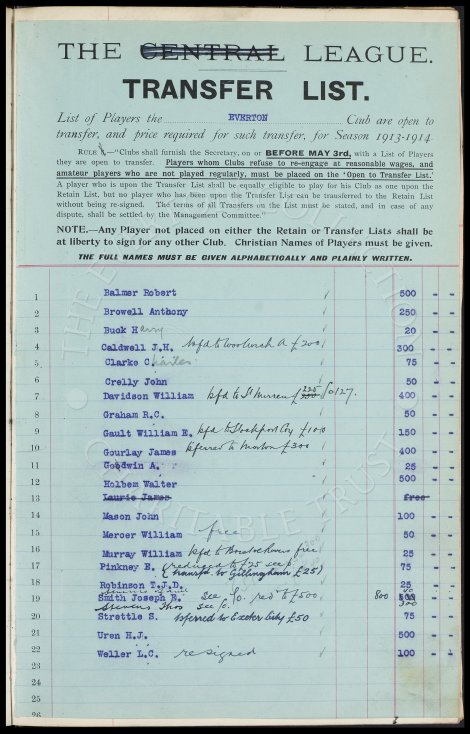 THE CENTRAL LEAGUE.
TRANSFER LIST.
List of Players the EVERTON Club are open to
transfer, and price required for such transfer, for Season 1913-1914.
RULE —"Clubs shall furnish the Secretary, on or BEFORE MAY 3rd, with a List of Players
they are open to transfer. Players whom Clubs refuse to re-engage at reasonable wages, and
amateur players who are not played regularly, must be placed on the 'Open to Transfer List.'
A player who is upon the Transfer List shall be equally eligible to play for his Club as one upon the
Retain List, but no player who has been upon the Transfer List can be transferred to the Retain List
without being re-signed. The terms of all Transfers on the List must be stated, and in case of any
dispute, shall be settled by the Management Committee."
NOTE.—Any Player not placed on either the Retain or Transfer Lists shall be
at liberty to sign for any other Club. Christian Names of Players must be given.
THE FULL NAMES MUST BE GIVEN ALPHABETICALLY AND PLAINLY WRITTEN.
1 Balmer Robert 500 - -
2 Browell Anthony 250 - -
3 Buck Harry 20 - -
4 Caldwell J.H. tsfd to Woolwich A £200 300 - -
5 Clarke Charles 75 - -
6 Crelly John 50 - -
7 Davidson William tsfd to St Mirren £225 400 - -
8 Graham R.C. 50 - -
9 Gault William E. tsfd to Stockport Cy £100 150 - -
10 Gourlay James tsferred to Morton £300 400 - -
11 Goodwin A. 25 - -
12 Holbem Walter 500 - -
13 Laurie James free
14 Mason John 100 - -
15 Mercer William free 50 - -
16 Murray William tsfd to Bristol Rovers free 25 - -
17 Pinkney E. (reduced to £25 see p.
(transfd to Gillingham £25) 75 - -
18 Robinson T.J.D. 25 - -
19 Smith Joseph R. see fo. redd to £500. 800 500 - -
Stevens Thos see fo. 300
20 Strettle S. tsferred to Exeter City £50 75 - -
21 Uren H.J. 500 - -
22 Weller L.C. re-signed 100 - -
23
24
25
26